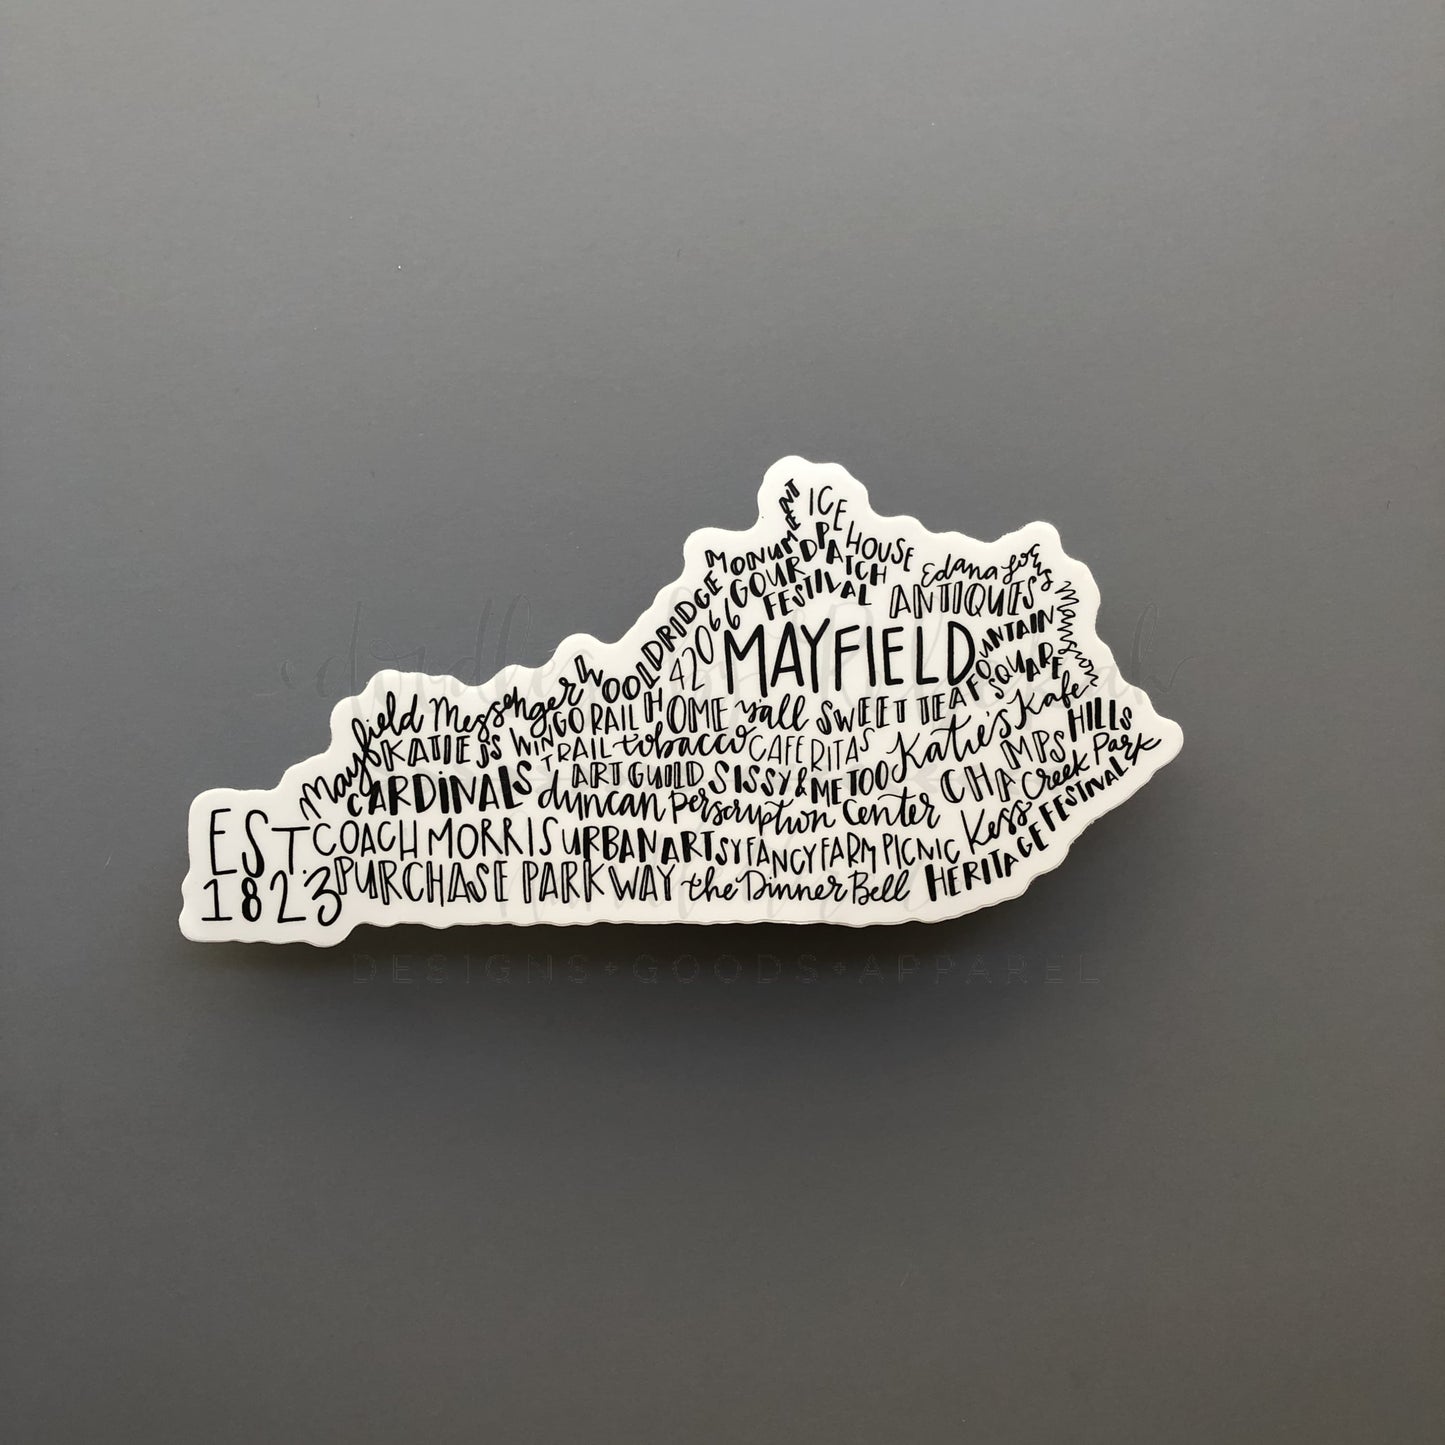 ICE
HOUSE
MONUMENT
GOURD PATCH
FESTIVAL
Edana Locus Mansion
ANTIQUES
WOOLDRIDGE
42066
MAYFIELD
FOUNTAIN
SQUARE
Mayfield Messenger
WINGO RAIL
TRAIL
HOME
y'all
SWEET TEA
Katie's Kafe
HILLS
KATIE JS
tobacco
CAFE RITAS
MPS
Creek Park
CARDINALS
ART GUILD
SISSY & ME TOO
CHA
duncan Perscription Center
Kess
EST.
1823
COACH MORRIS
URBAN ARTSY
FANCY FARM PICNIC
HERITAGE FESTINVALS
PURCHASE PARKWAY
the Dinner Bell
DESIGNS+GOODS+APPAREL